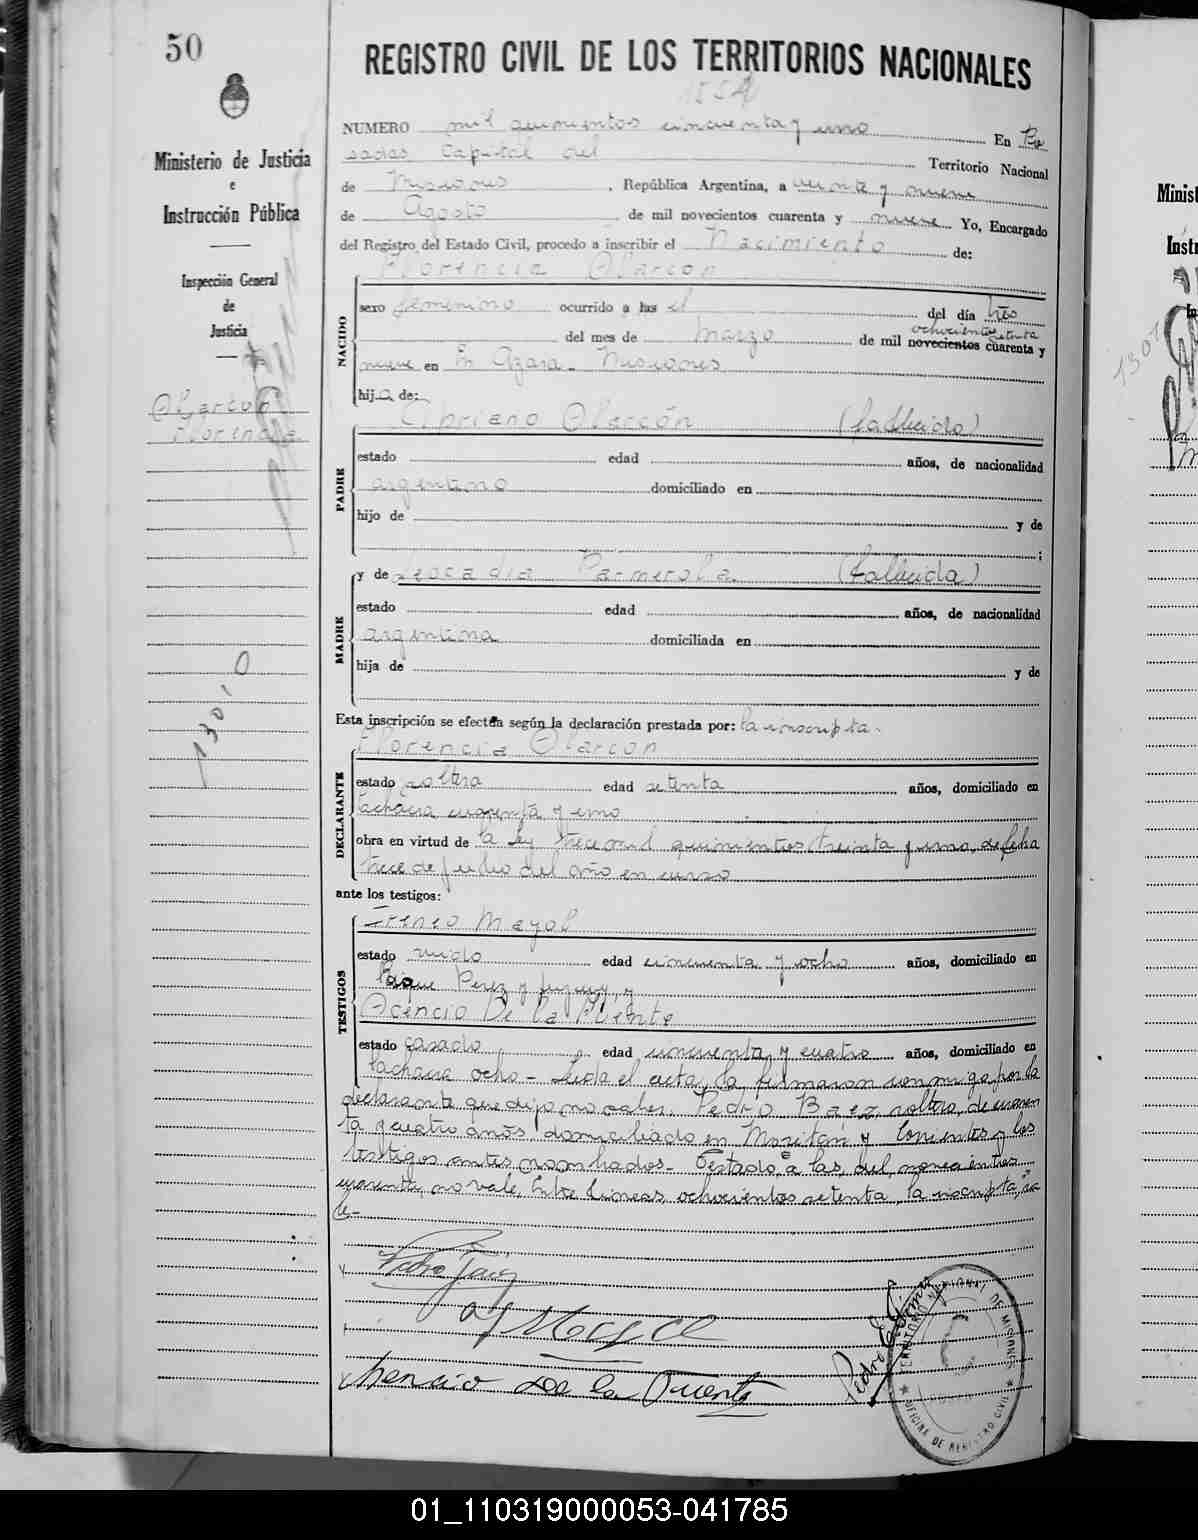 50
REGISTRO CIVIL DE LOS TERRITORIOS NACIONALES
Ministerio de Justicia
e
Instrucción Pública
Inspección General
de
Justicia
Alarcon
Florencia
NUMERO mil quinientos cincuenta y uno En Po
sadas Capital del Territorio Nacional
de Misiones, República Argentina, a veinte y nueve
de Agosto de mil novecientos cuarenta y nueve Yo, Encargado
del Registro del Estado Civil, procedo a inscribir el Nacimiento de:
Florencia Alarcon
NACIDO
sexo femenino ocurrido a las el del día tres
ochocientos setenta
del mes de Marzo de mil novecientos cuarenta y
nueve en En Azara - Misiones
hija de:
PADRE
Cipriano Alarcón (fallecido)
estado edad años, de nacionalidad
argentino domiciliado en
hijo de y de
;
MADRE
y de Leocadia Parmerola (fallecida)
estado edad años, de nacionalidad
argentina domiciliada en
hija de y de
Esta inscripción se efectúa según la declaración prestada por: la inscripta.
DECLARANTE
Florencia Alarcon
estado soltera edad setenta años, domiciliado en
chacra cuarenta y uno
obra en virtud de la ley trece mil quinientos treinta y uno, de fecha
trece de Julio del año en curso
ante los testigos:
TESTIGOS
Ireneo Mayol
estado viudo edad cincuenta y ocho años, domiciliado en
Roque Perez y Jujuy, y
Acencio De la Fuente
estado casado edad cincuenta y cuatro años, domiciliado en
chacra ocho - Leida el acta, la firmaron conmigo, por la
declarante que dijo no saber, Pedro Baez, soltero, de cuaren
ta y cuatro años, domiciliado en y Corrientes y los
testigos antes nombrados - Testado: a las, del, novecientos
cuarenta, no vale, Entre lineas, ochocientos setenta, la inscripta, va
le -
Acencio De la Fuente
TERRITORIO NACIONAL DE MISIONES
OFICINA DE REGISTRO CIVIL
1301
Minis
Inst
01_110319000053-041785